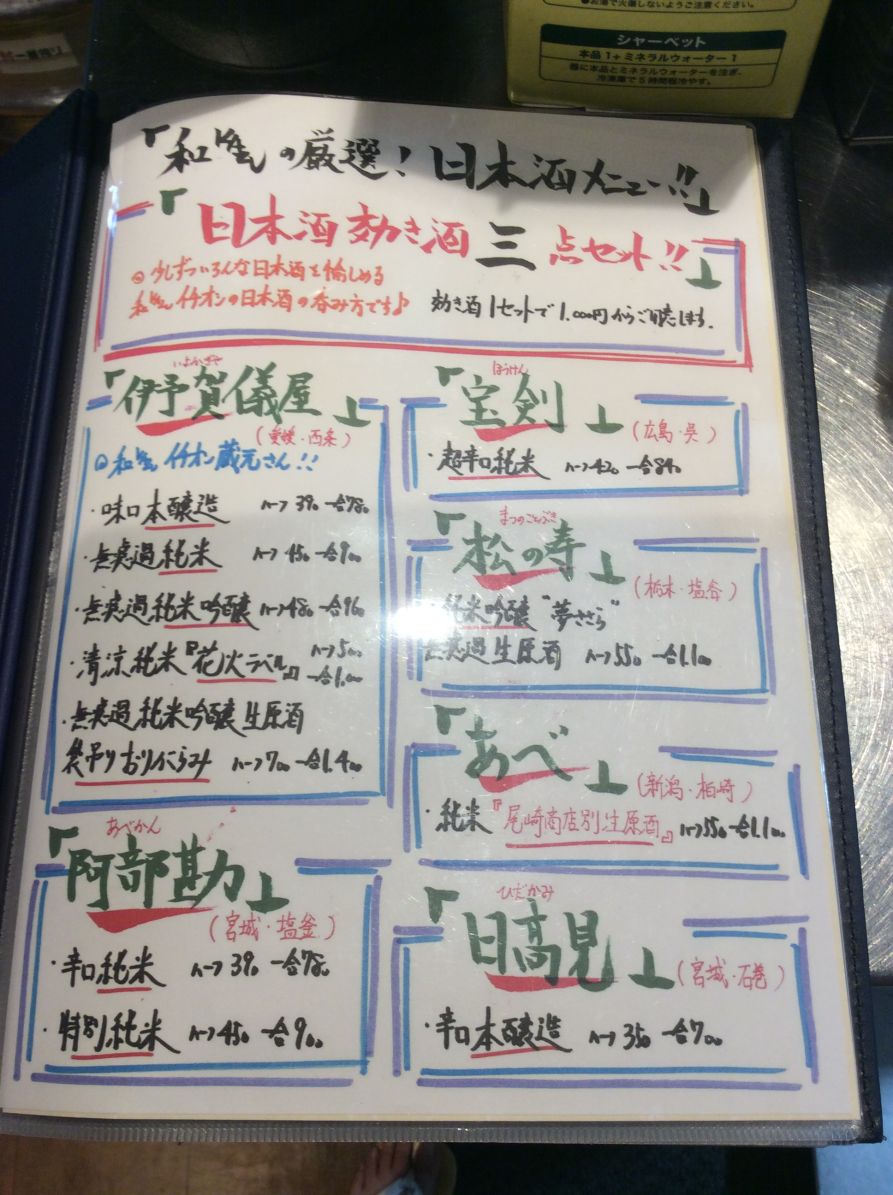 ●お湯で火傷しないようご注意ください。
シャーベット
本品1+ミネラルウォーター1
器に本品とミネラルウォーターを注ぎ、
冷凍庫で5時間程冷やす。
「和 の厳選!日本酒メニュー!!」
「日本酒効き酒三点セット!!」
◎少しずついろんな日本酒を愉しめる
和 イチオシの日本酒の呑み方です♪
効き酒1セットで1.000円からご用意します。
いよかぎや
「伊予賀儀屋」
(愛媛・西条)
◎和 イチオシ蔵元さん!!
・味口本醸造 ハーフ390 一合780
・無濾過純米 ハーフ450 一合900
・無濾過純米吟醸 ハーフ480 一合960
・清涼純米『花火ラベル』 ハーフ500
一合1.000
・無濾過純米吟醸生原酒
袋吊りおりがらみ ハーフ700 一合1.400
あべかん
「阿部勘」
(宮城・塩釜)
・辛口純米 ハーフ390 一合780
・特別純米 ハーフ450 一合900
ほうけん
「宝剣」
(広島・呉)
・超辛口純米 ハーフ420 一合840
まつのことぶき
「松の寿」
(栃木・塩谷)
純米吟醸"夢ささら"
無濾過生原酒 ハーフ550 一合1.100
「あべ」
(新潟・柏崎)
・純米『尾崎商店別生原酒』 ハーフ550 一合1.100
ひだかみ
「日高見」
(宮城・石巻)
・辛口本醸造 ハーフ350 一合700